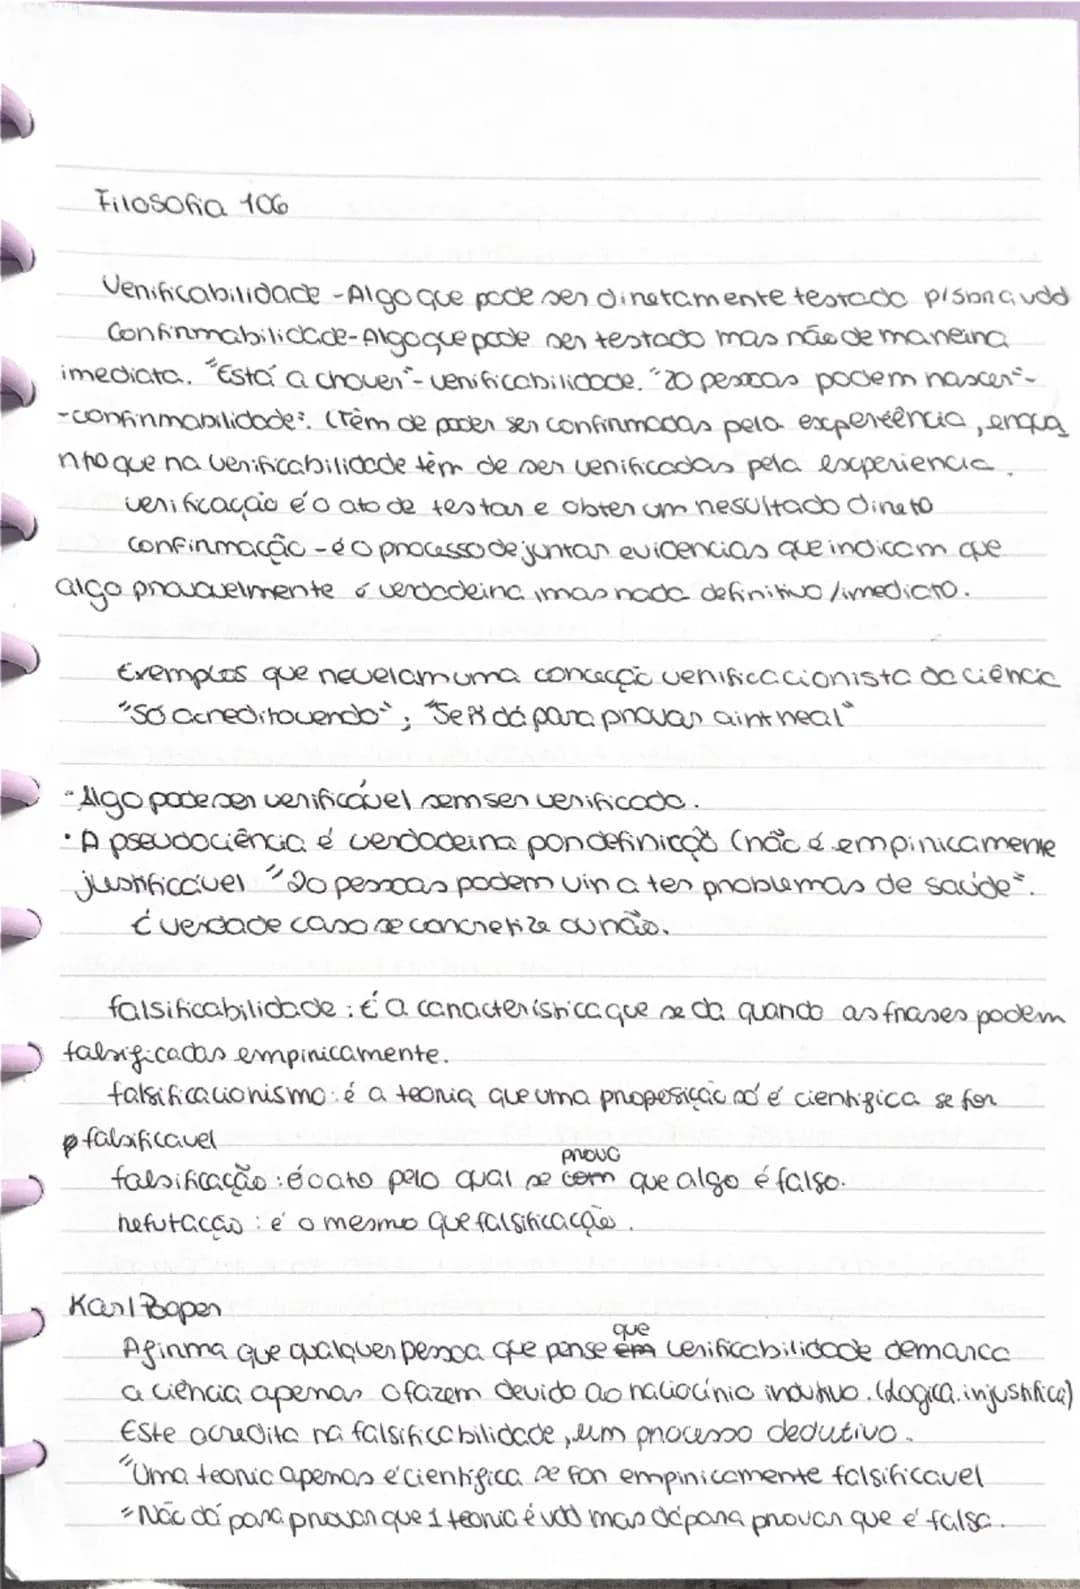 Filosofia 106
Verificabilidade - Algo que pode ser diretamente testado p/s vdd
Confirmabilidade - Algo que pode ser testado mas não de maneira
imediata. "Está a chover" - verificabilidade. "20 pessoas podem nascer" -
- confirmabilidade". (Têm de poder ser confirmadas pela expereência, enqua
nto que na verificabilidade têm de ser verificadas pela experiencia.
verificação é o ato de testar e obter um resultado direto
confirmação - é o processo de juntar evidencias que indicam que
algo provavelmente é verdadeira, mas nada definitivo / imediato.
Exemplos que revelam uma conceção verificacionista da ciência
"Só acredito vendo"; "Se ñ dá para provar aint real"
- Algo pode ser verificável sem ser verificado.
· A pseudociência é verdadeira por definição (não é empiricamente
justificável "20 pessoas podem vir a ter problemas de saúde".
É verdade caso se concretize ou não.
falsificabilidade : É a característica que se dá quando as frases podem
falsificadas empiricamente.
falsificacionismo : é a teoria que uma proposição só é cientifica se for
falsificavel
prova
falsificação : é o ato pelo qual se com que algo é falso.
refutação : é o mesmo que falsificação.
Karl Poper
que
Afirma que qualquer pessoa que pense em verificabilidade demarca
a ciência apenas o fazem devido ao raciocínio indutivo. (logica injustifica)
Este acredita na falsificabilidade, um processo dedutivo.
"Uma teoria apenas é cientifica se for empiricamente falsificavel
"Não dá para provar que 1 teoria é vdd mas dá para provar que é falsa.